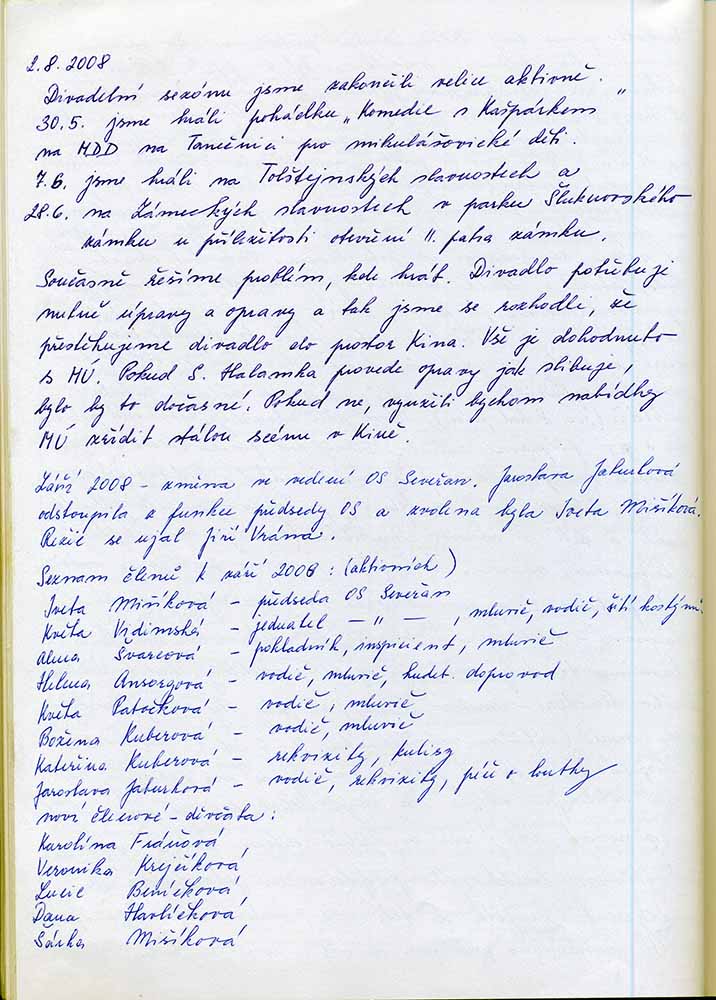 2.8.2008
Divadelní sezónu jsme zakončili velice aktivně.
30.5. jsme hráli pohádku „Komedie s Kašpárkem"
na MDD na Tanečnici pro mikulášovické děti.
7.6. jsme hráli na Tolštejnských slavnostech a
28.6. na Zámeckých slavnostech v parku Šluknovského
zámku u příležitosti otevření II. patra zámku.
Současně řešíme problém, kde hrát. Divadlo potřebuje
nutně úpravy a opravy a tak jsme se rozhodli, že
přestěhujeme divadlo do prostor Kina. Vše je dohodnuto
s MÚ. Pokud S. Halamka provede opravy jak slibuje,
bylo by to dočasné. Pokud ne, využili bychom nabídky
MÚ zřídit stálou scénu v Kině.
Září 2008 - změna ve vedení OS Severan. Jaroslava Jaturková
odstoupila z funkce předsedy OS a zvolena byla Iveta Mišíková.
Režie se ujal Jiří Vrána.
Seznam členů k září 2008 : (aktivních)
Iveta Mišíková - předseda OS Severan
Květa Vidimská - jednatel — " — , mluvič, vodič, šití kostýmů.
Alena Švarcová - pokladník, inspicient, mluvič
Helena Ansorgová - vodič, mluvič, hudeb. doprovod
Květa Patočková - vodič, mluvič
Božena Kuberová - vodič, mluvič
Kateřina Kuberová - rekvizity, kulisy
Jaroslava Jaturková - vodič, rekvizity, péče o loutky
noví členové - děvčata :
Karolína Fráňová
Veronika Krejčíková
Lucie Beníčková
Dana Havlíčková
Šárka Mišíková